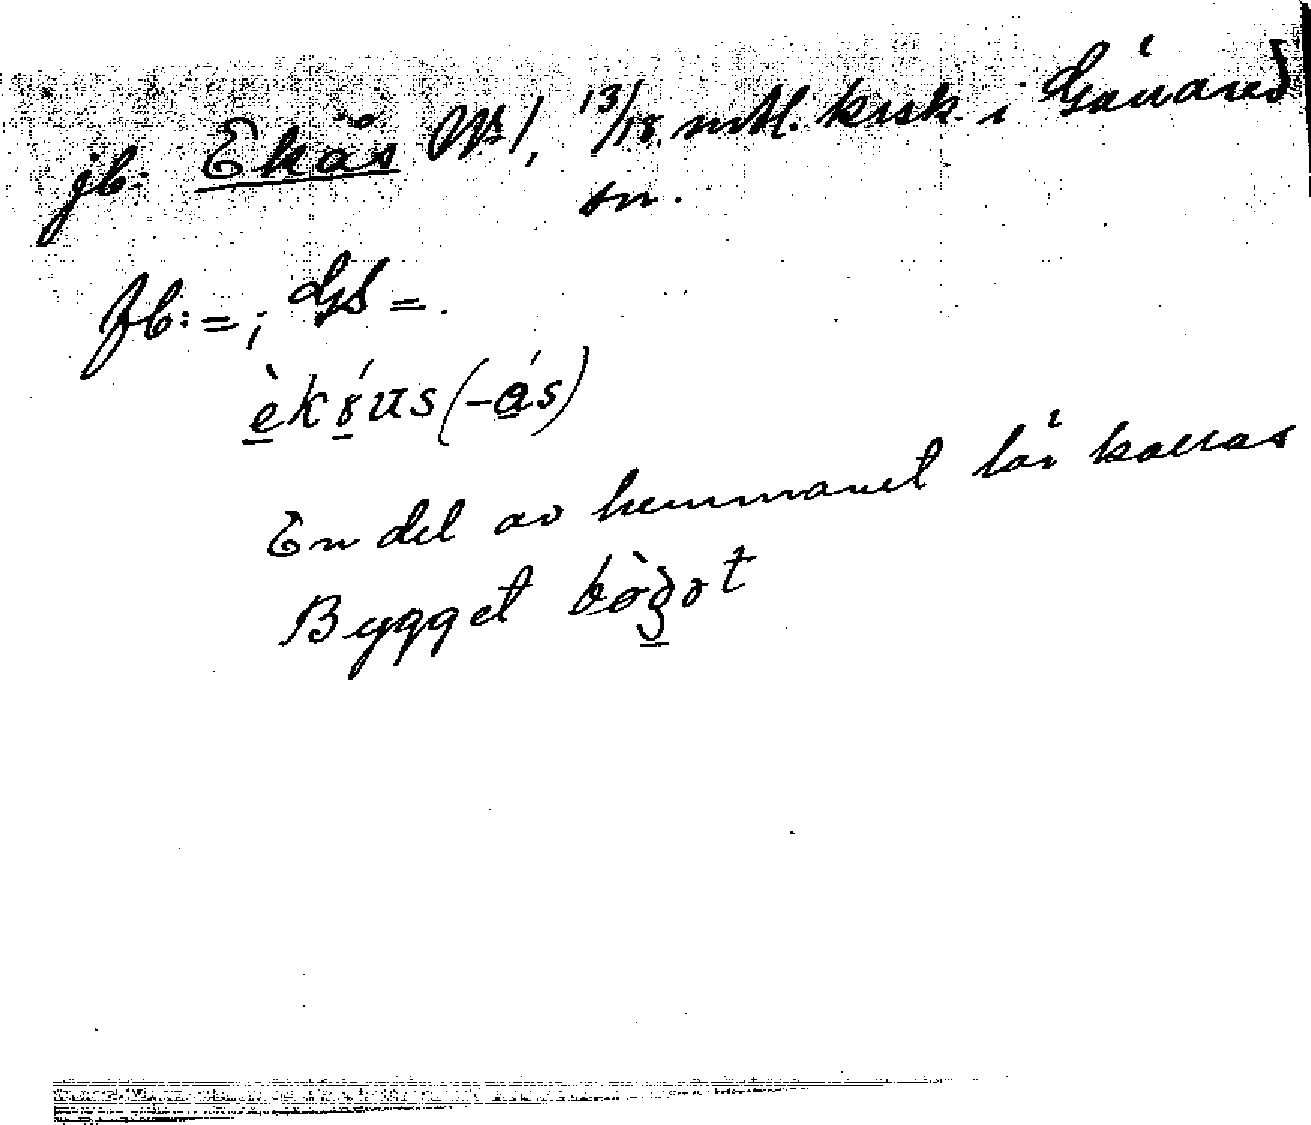 jb. Ekås Nr 1, 13/18 mtl. krsk. i Gånared
sn.
Jb: = ; GS = .
èkɤ́ʋs (-ás)
En del av hemmanet lär kallas
Bygget bògot